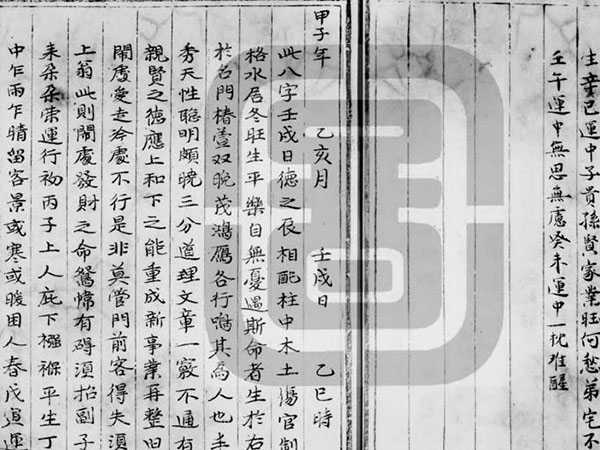 圭辛巳運中子貴孫賢家業旺何愁弟宅不
壬午運中無思無慮癸未運中一枕难醒
甲子年 乙亥月 壬戌日 乙巳時
此八字壬戌日德之辰相配柱中木土傷官制
格水居冬旺生平樂自無憂遇斯命者生於右
於名門椿萱双晚茂鴻鴈各行啣其為人也丰
秀天性聪明頗曉三分道理文章一竅不通有
親賢之德應上和下之能重成新事業再整旧
閙處愛走冷處不行是非莫管門前客得失須
上翁此則閙處發財之命鴛幃有碍須招副子
来朶朶栄運行初丙子上人庇下襁褓平生丁
中乍雨乍晴留客景或寒或暖困人春戊寅運